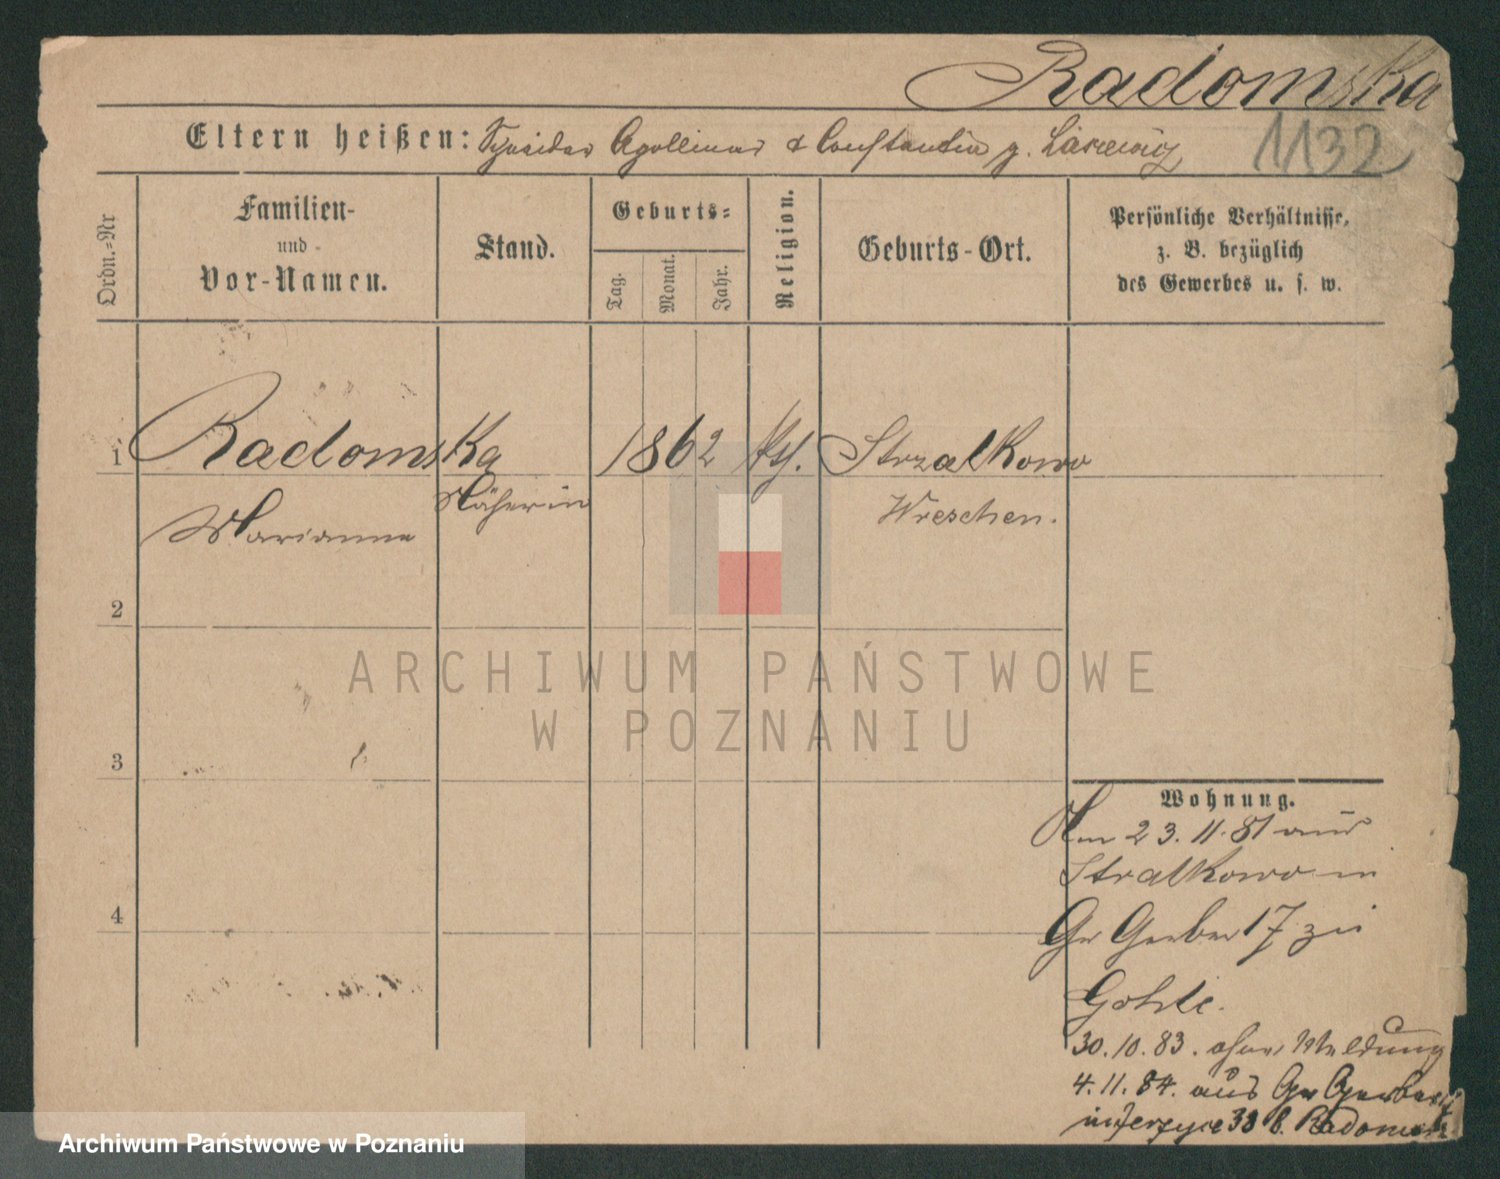 Radomska
Eltern heißen: Schneider Apollinar & Constantia g.
1132
Ordn.-Nr
Familien-
und
Vor-Namen.
Stand.
Geburts=
Tag.
Monat.
Jahr.
Religion.
Geburts-Ort.
Persönliche Verhältnisse,
z. B. bezüglich
des Gewerbes u. s. w.
1 Radomska 1862 kth. Strzalkowo
Marianna Näherin Wreschen.
2
3
4
Wohnung.
Am 23.11.81 aus
Stralkowo in
Gr Gerber 17 zu
30.10.83. ohne Meldung
4.11.84. aus Gr Gerber
38 b. Radomsk
ARCHIWUM PAŃSTWOWE
W POZNANIU
Archiwum Państwowe w Poznaniu